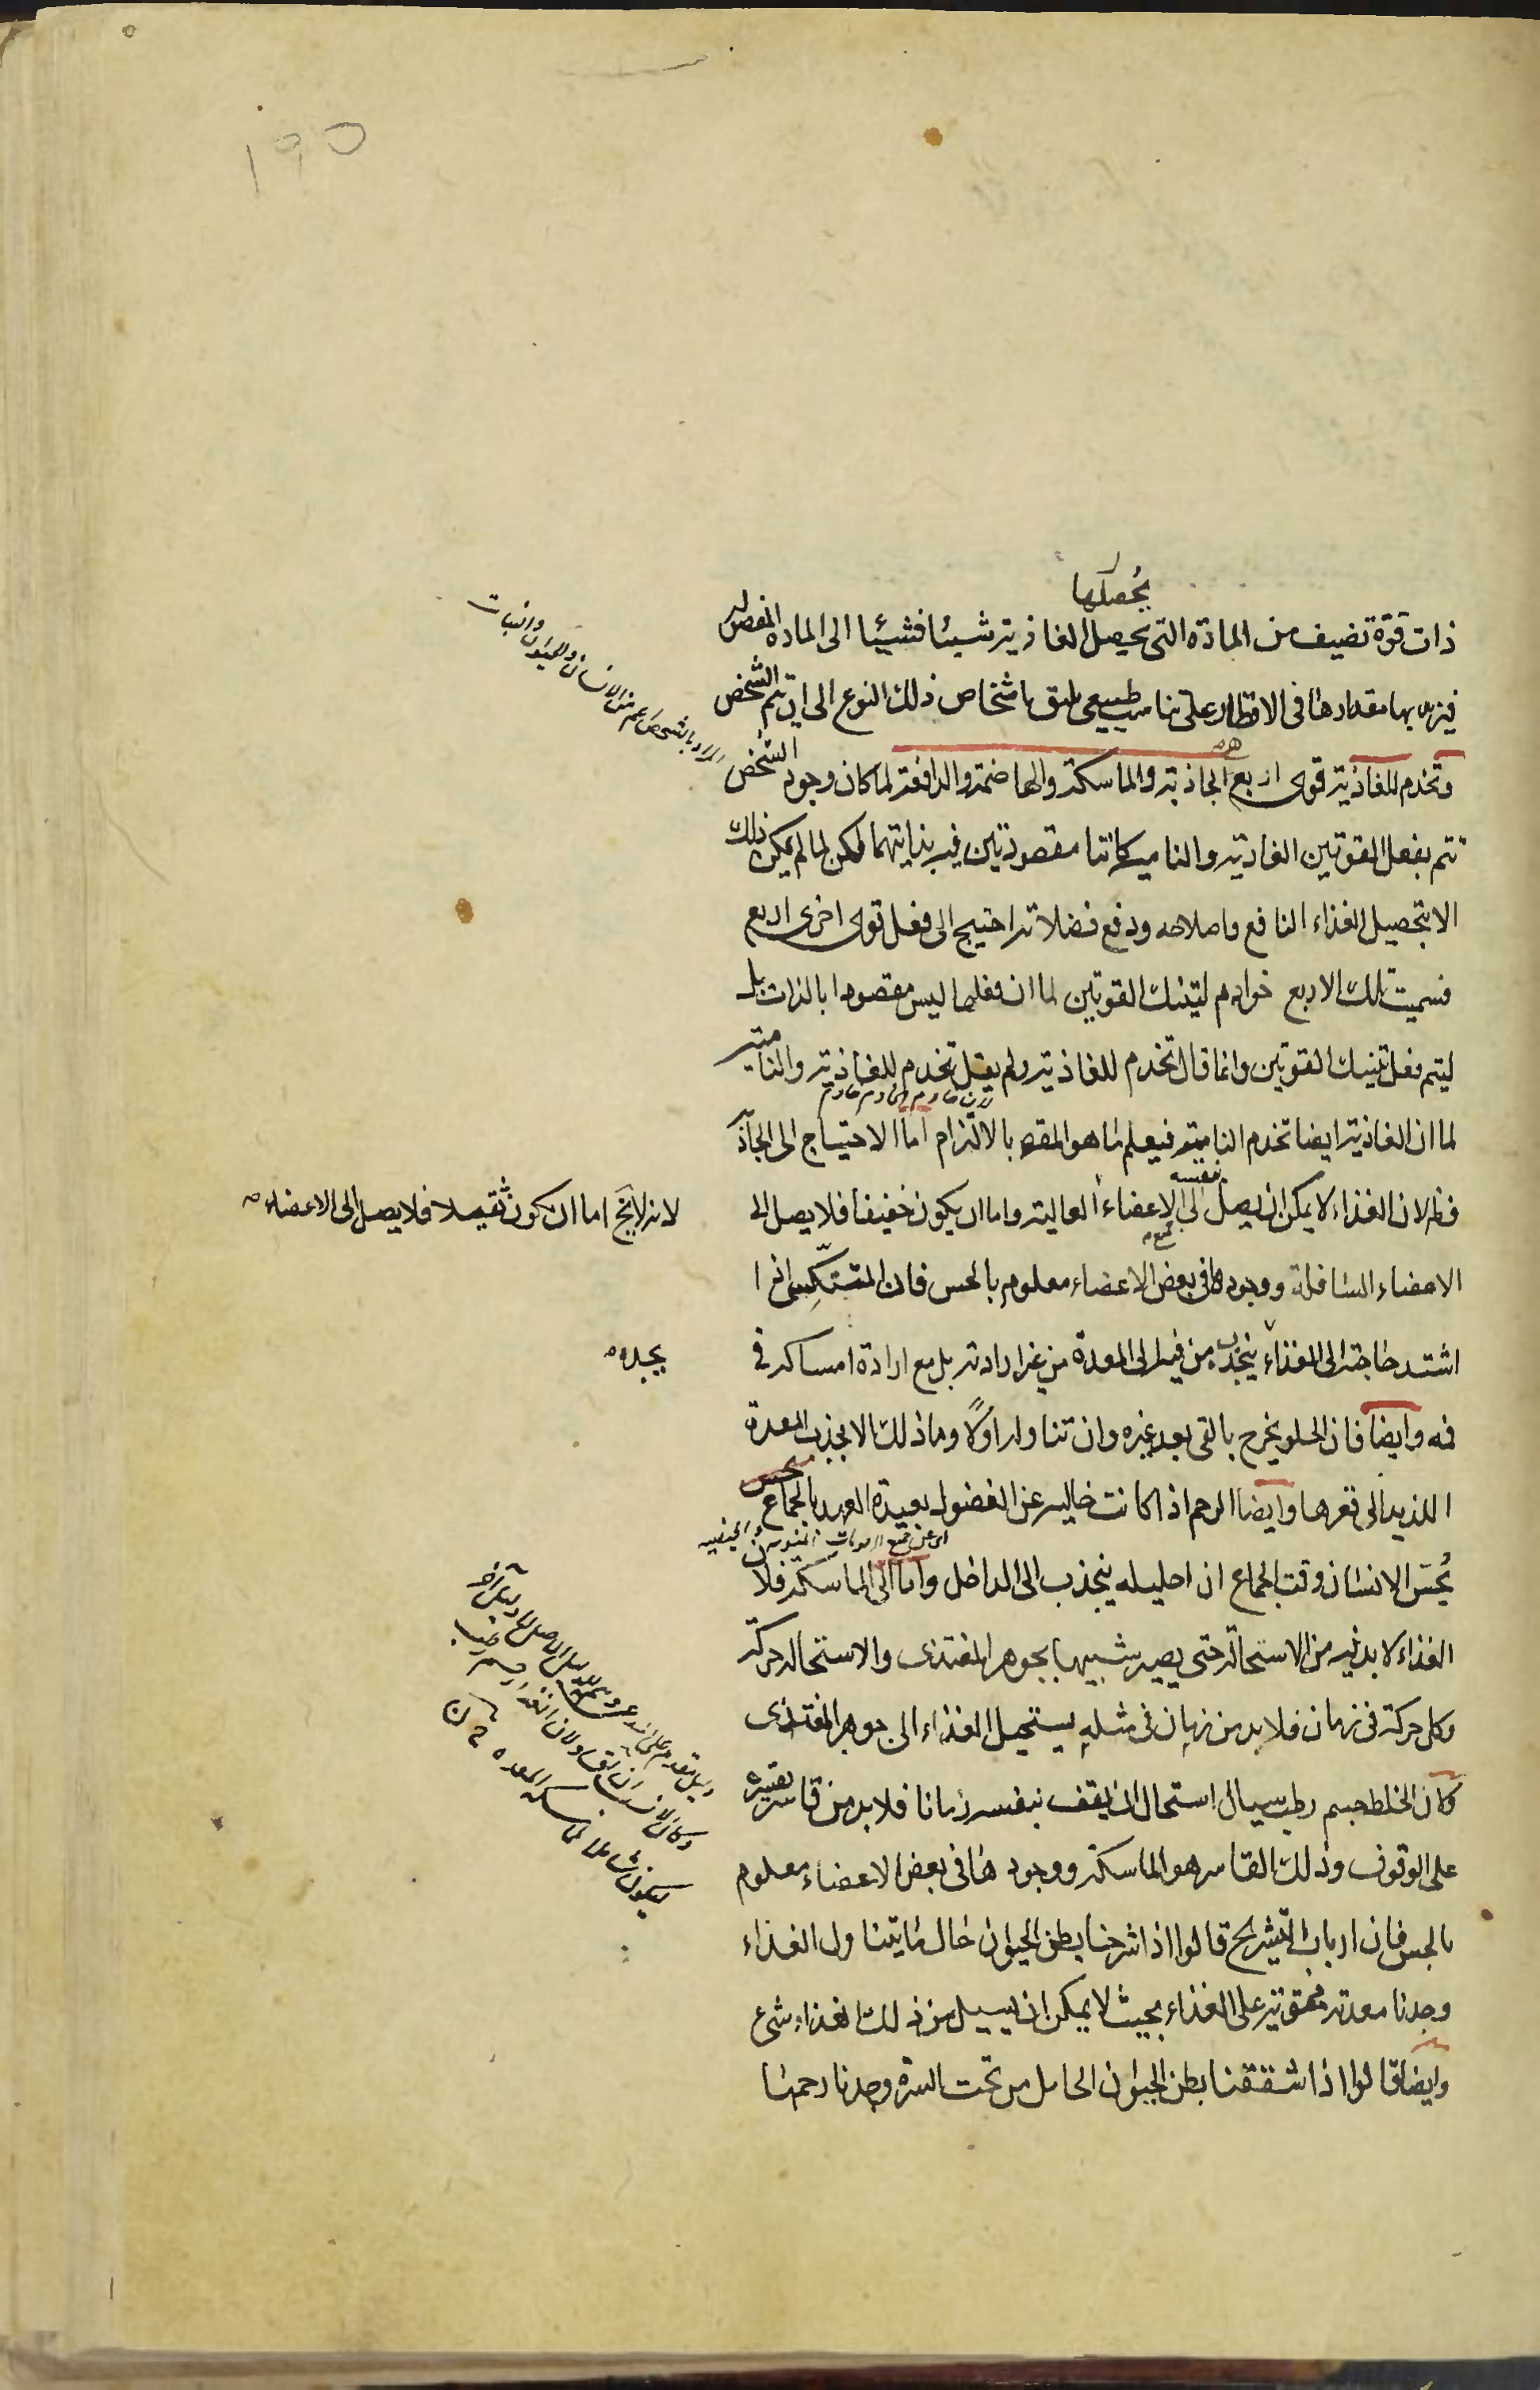 ١٩٥
يحصلها
ذات قوة تضيف من المادة التى يحصل الغاذية شيئا فشيئا الى المادة المفصولة
فيزيد بها مقدارها فى الاقطار على تناسب طبيعى يليق باشخاص ذلك النوع الى ان يتم الشخص
وتخدم للغاذية قوى اربع الجاذبة والماسكة والهاضمة والدافعة لما كان وجود الشخص
تتم بفعل القوتين الغاذية والنامية كانتا مقصودتين فيه بذاتيهما لكن لما لم يمكن ذلك
الا بتحصيل الغذاء النافع واصلاحه ودفع فضلاته احتيج الى فعل قوى اخرى اربع
فسميت تلك الاربع خوادم لتينك القوتين لما ان فعلها ليس مقصودا بالذات بل
ليتم فعل تينك القوتين وانما قال تخدم للغاذية ولم يقل تخدم للغاذية والنامية
لان خادم الخادم خادم
لما ان الغاذية ايضا تخدم النامية فيعلم ما هو المقصد بالالتزام اما الاحتياج الى الجاذ
فظ لان الغذاء لا يمكن ان يصل بنفسه الى الاعضاء العالية واما ان يكون خفيفا فلا يصل الى
لانه لا يخ اما ان يكون ثقيلا فلا يصل الى الاعضاء
الاعضاء السافلة ووجودها فى بعض الاعضاء معلوم بالحس فان المتنكس اذا
اشتد حاجته الى الغذاء ينجذب من فيه الى المعدة من غير ارادته بل مع ارادة امساكه فى
يجده
فمه وايضا فان الحلو يخرج بالقى بعد غيره وان تناوله اولا وما ذلك الا بجذب المعدة
اللذيذ الى قعرها وايضا الرحم اذا كانت خالية عن الفضول بعيدة العهد بالجماع
يحس الانسان وقت الجماع ان احليله ينجذب الى الداخل واما الى الماسكة فلان
الغذاء لا بد فيه من الاستحالة حتى يصير شبيها بجوهر المغتذى والاستحالة حركة
وكل حركة فى زمان فلا بد من زمان فى مثله يستحيل الغذاء الى جوهر المغتذى
وكان الخلط جسم رطب سيال استحال ان يقف بنفسه زمانا فلا بد من قاسر يقسره
على الوقوف وذلك القاسر هو الماسكة ووجودها فى بعض الاعضاء معلوم
بالحس فان ارباب التشريح قالوا اذا شرحنا بطن الحيوان حال ما يتناول الغذاء
وجدنا معدته محتوية على الغذاء بحيث لا يمكن ان يسيل من ذلك الغذاء شئ
وايضا قالوا اذا شققنا بطن الحيوان الحامل من تحت السرة وجدنا رحمها